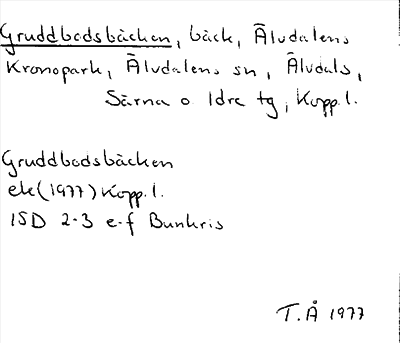 Gruddbodsbäcken, bäck, Älvdalens
Kronopark, Älvdalens sn, Älvdals,
Särna o Idre tg, Kopp.l.
Gruddbodsbäcken
ek(1977) Kopp.l.
15D 2-3 e-f Bunkris
T.Å 1977